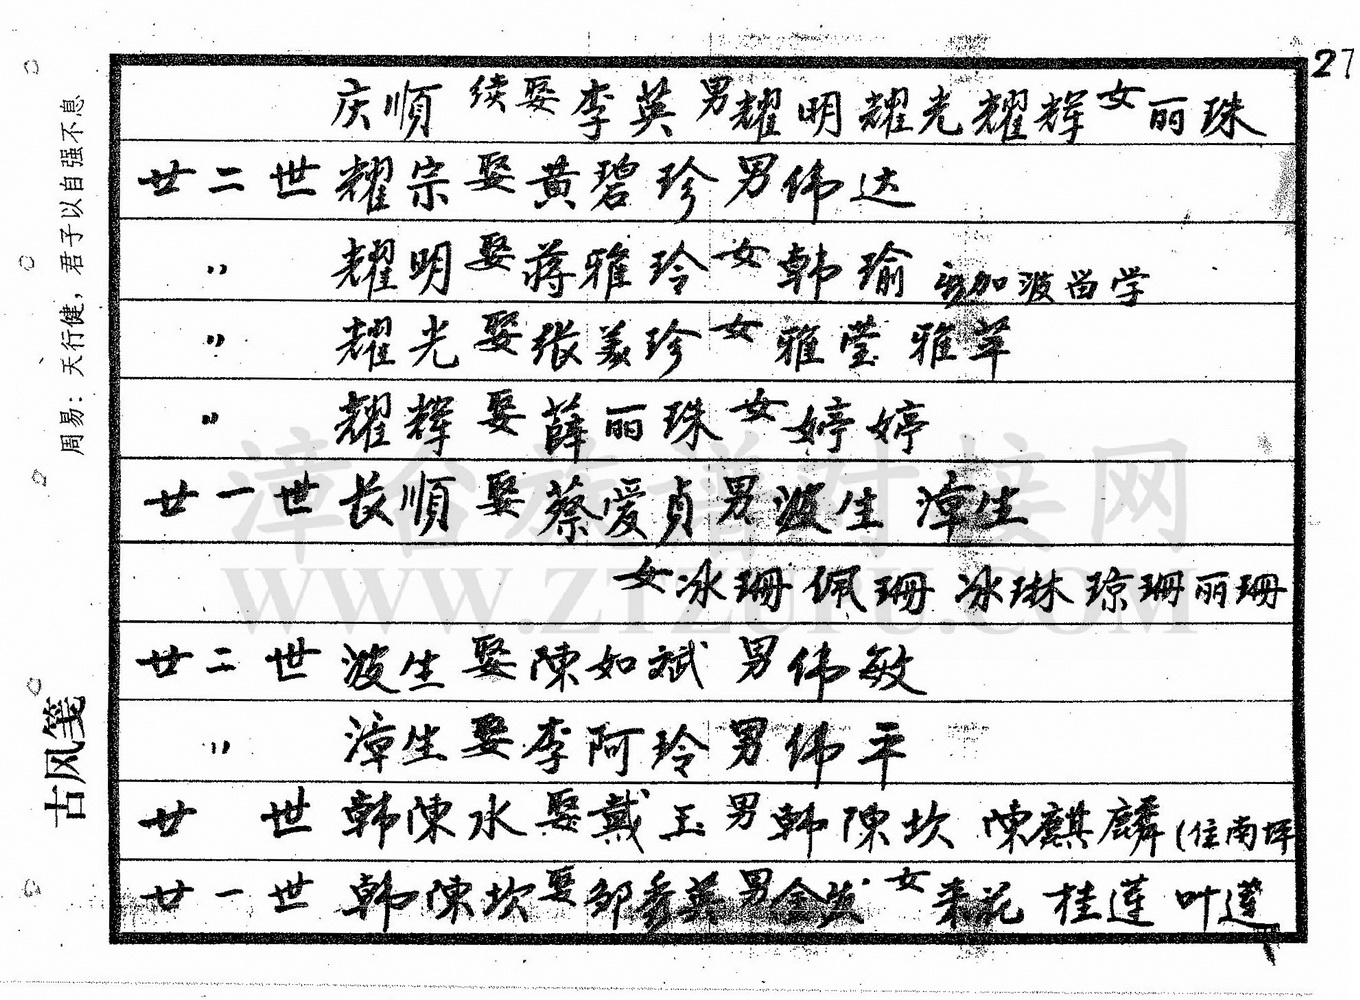 27
庆順 续娶 李英 男 耀明 耀光 耀辉 女 丽珠
廿二世 耀宗 娶 黄碧珍 男 伟达
〃 耀明 娶 蒋雅玲 女 韩瑜 新加波留学
〃 耀光 娶 张美珍 女 雅莹 雅苹
〃 耀辉 娶 薛丽珠 女 婷婷
廿一世 长順 娶 蔡爱貞 男 波生 漳生
女 冰珊 佩珊 冰琳 琼珊 丽珊
廿二世 波生 娶 陳如斌 男 伟敏
〃 漳生 娶 李阿玲 男 伟平
廿世 韩陳水 娶 戴玉 男 韩陳坎 陳麒麟(住南坪
廿一世 韩陳坎 娶 邹秀英 男 金发 女 来花 桂莲 叶莲
周易：天行健，君子以自强不息
古风笺
漳台族谱对接网
WWW.ZTZUPU.COM